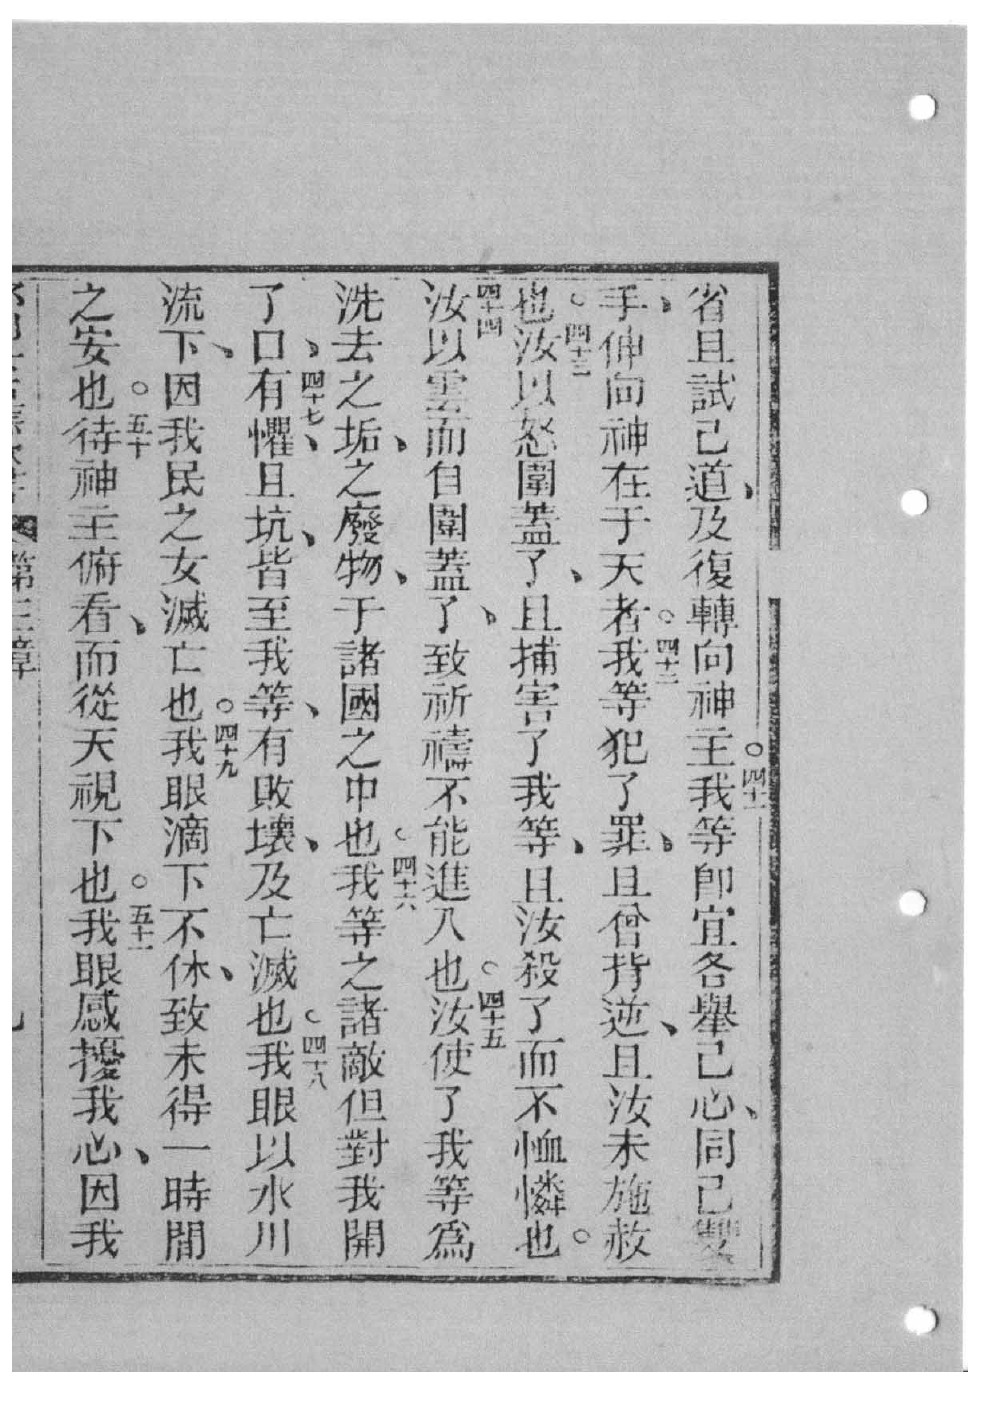 省且試己道、及復轉向神主。四十一我等卽宜各舉己心、同己雙
手、伸向神在于天者。四十二我等犯了罪、且曾背逆、且汝未施赦
也。四十三汝以怒圍蓋了、且捕害了我等、且汝殺了而不恤憐也。
四十四汝以雲而自圍蓋了、致祈禱不能進入也。四十五汝使了我等爲
洗去之垢、之廢物、于諸國之中也。四十六我等之諸敵但對我開
了口、四十七有懼、且坑、皆至我等、有敗壞、及亡滅也。四十八我眼以水川
流下、因我民之女滅亡也。四十九我眼滴下不休、致未得一時間
之安也。五十待神主俯看、而從天視下也。五十一我眼感擾我心、因我
第三章